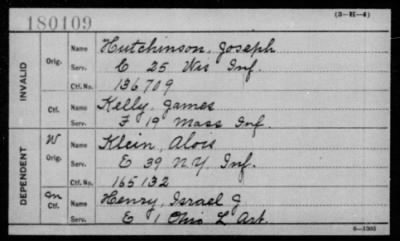 180109
(3-H-4)
INVALID
Orig.
Name Hutchinson, Joseph
Serv. C 25 Wis Inf.
Ctf. No. 136709
Ctf.
Name Kelly, James
Serv. F 19 Mass Inf.
DEPENDENT
W Orig.
Name Klein, Alois
Serv. E 39 N.Y. Inf.
Ctf. No. 165132
Ctf.
Name Henry, Israel J
Serv. E 1 Ohio L Art.
6-1303